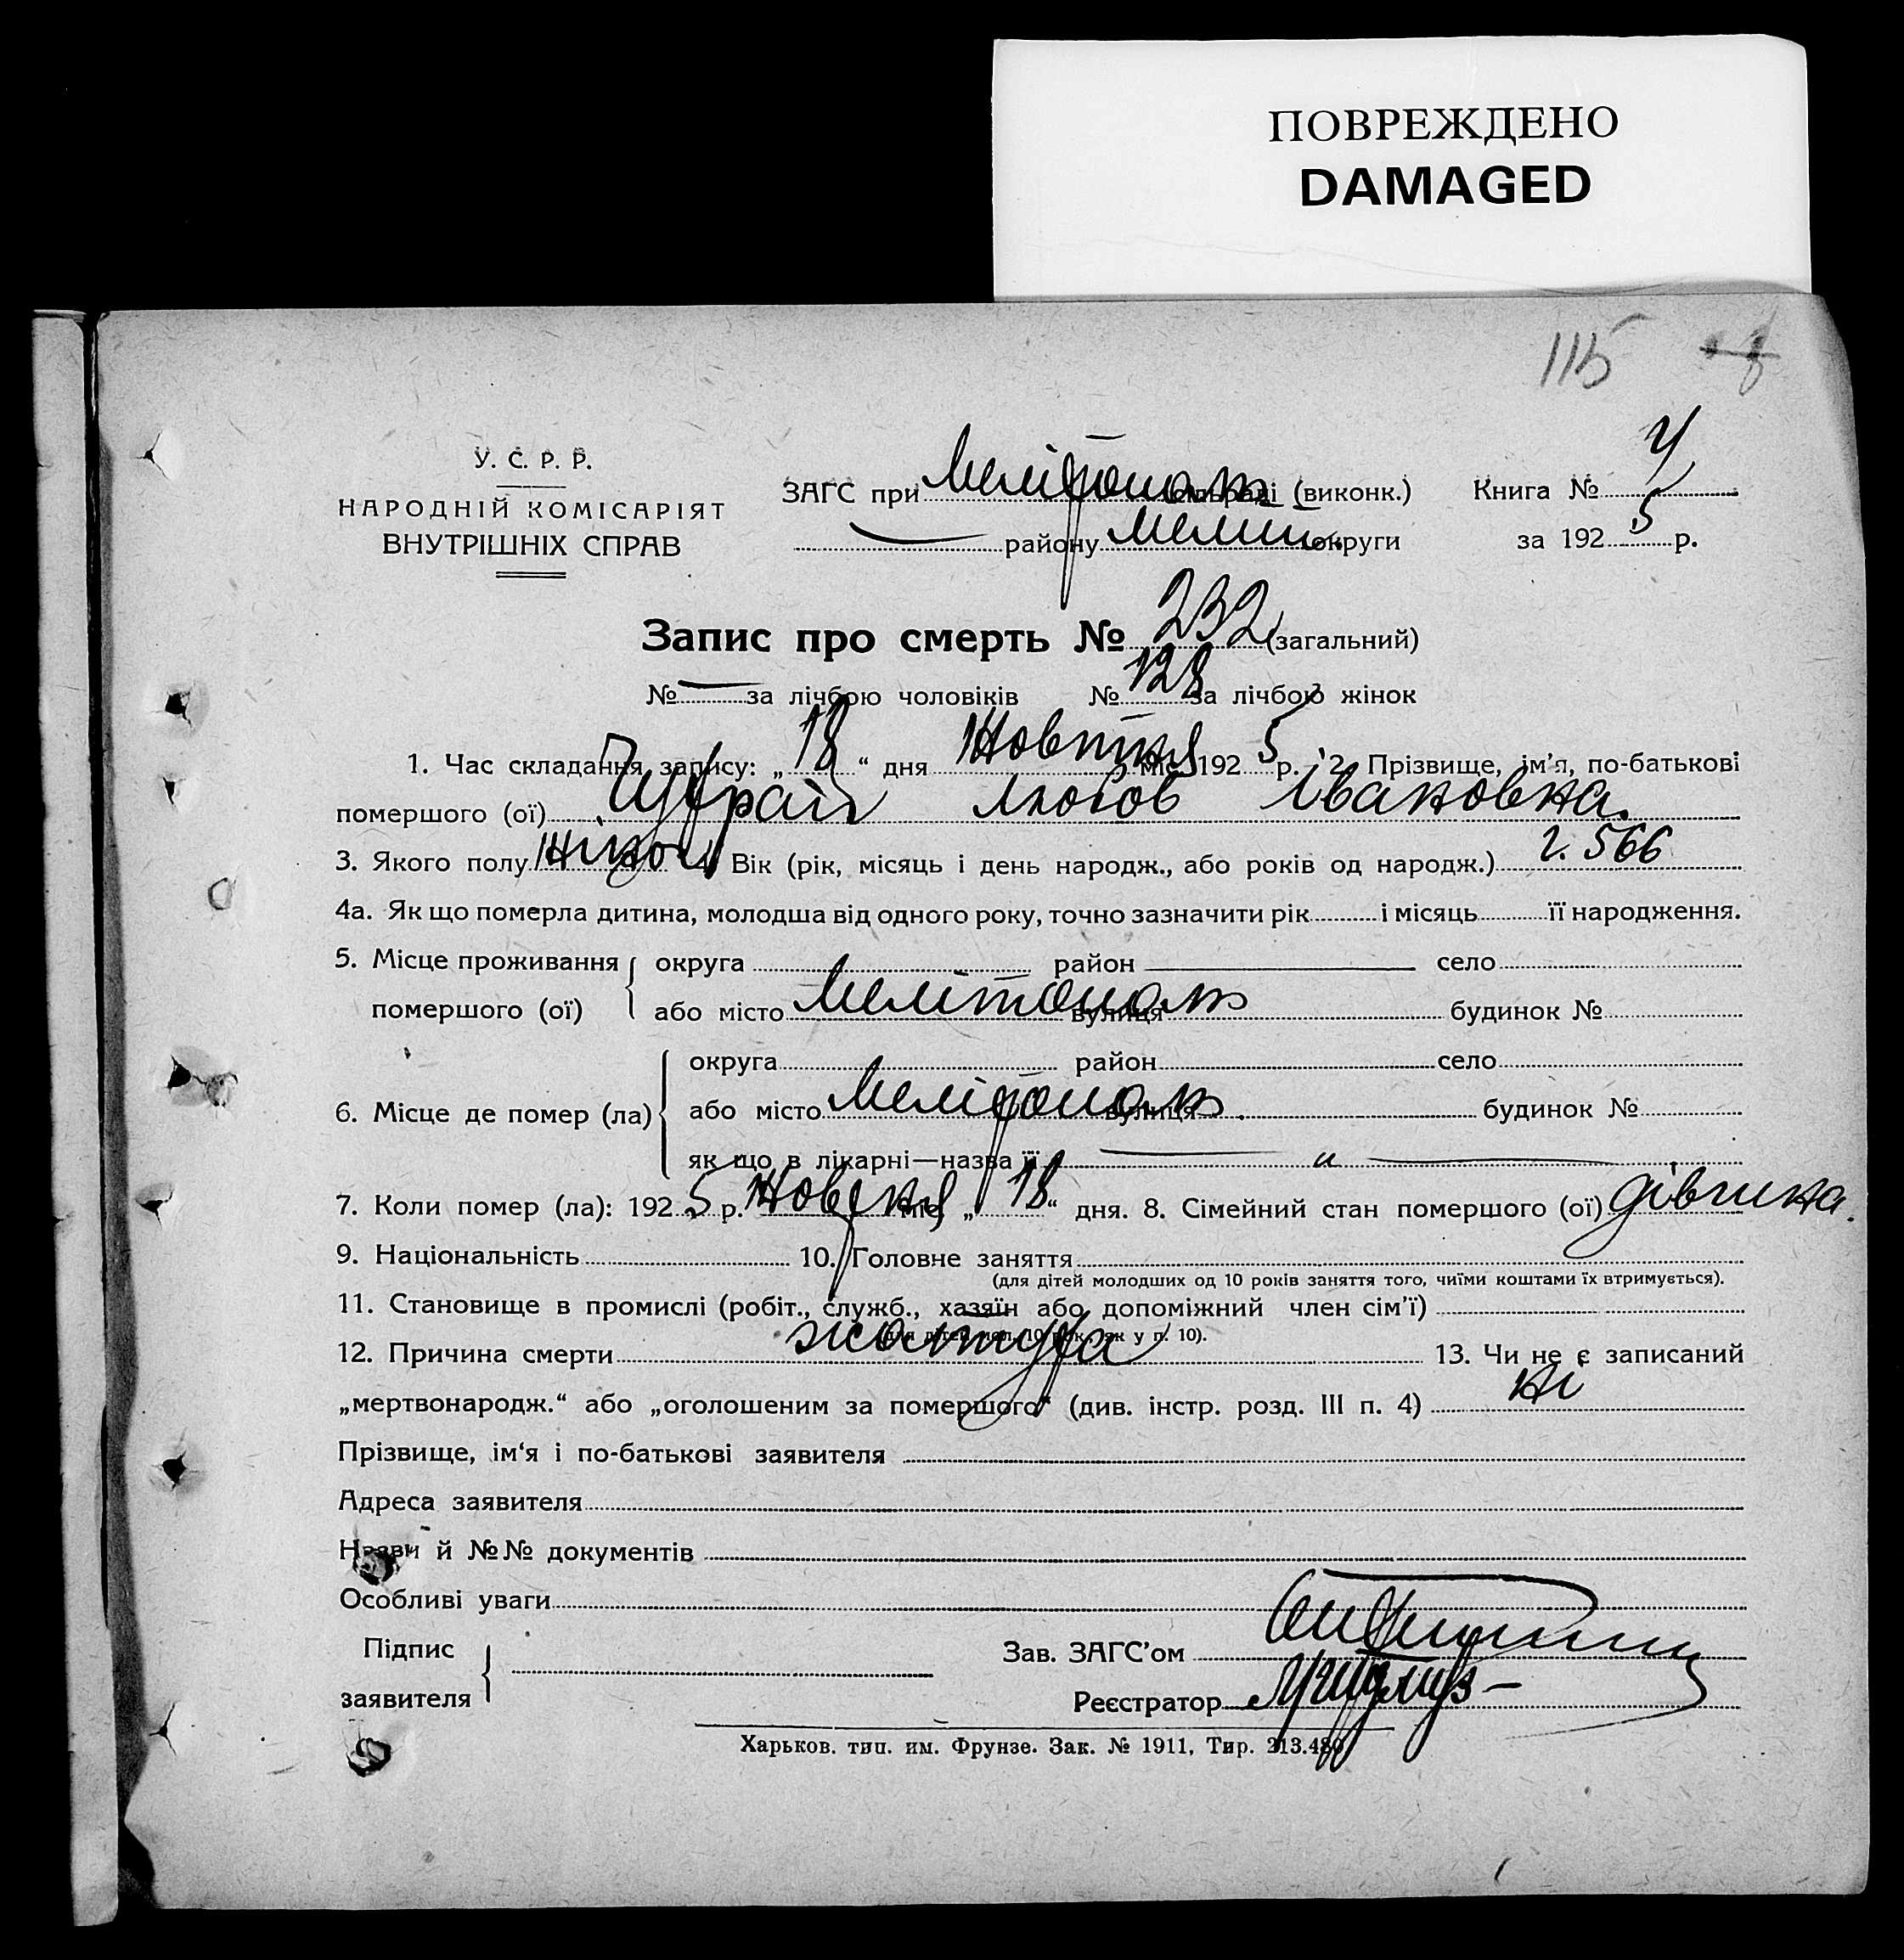 ПОВРЕЖДЕНО
DAMAGED
115
У. С. Р. Р.
НАРОДНІЙ КОМІСАРІЯТ
ВНУТРІШНІХ СПРАВ
ЗАГС при Мелітополь сільраді (виконк.) Книга № 4
району Мелит. округи за 1925 р.
Запис про смерть № 232 (загальний)
№ — за лічбою чоловіків № 128 за лічбою жінок
1. Час складання запису: „18“ дня Жовтня міс. 1925 р. 2. Прізвище, ім'я, по-батькові
помершого (ої) Любов Івановна.
3. Якого полу Вік (рік, місяць і день народж., або років од народж.)
4а. Як що померла дитина, молодша від одного року, точно зазначити рік і місяць її народження.
5. Місце проживання округа район село
помершого (ої) або місто Мелітополь вулиця будинок №
округа район село
6. Місце де помер (ла) або місто Мелітополь вулиця будинок №
як що в лікарні—назва її — „ —
7. Коли помер (ла): 1925 р. Жовтня міс. „18“ дня. 8. Сімейний стан помершого (ої) дівчина.
9. Національність 10. Головне заняття
(для дітей молодших од 10 років заняття того, чиїми коштами їх втримується).
11. Становище в промислі (робіт., служб., хазяїн або допоміжний член сім'ї)
(для дітей мол. 10 рок., як у п. 10).
12. Причина смерти 13. Чи не є записаний
„мертвонародж.“ або „оголошеним за помершого“ (див. інстр. розд. III п. 4) ні
Прізвище, ім'я і по-батькові заявителя
Адреса заявителя
Назви й №№ документів
Особливі уваги
Підпис Зав. ЗАГС'ом
заявителя Реєстратор
Харьков. тип. им. Фрунзе. Зак. № 1911, Тир. 213.480